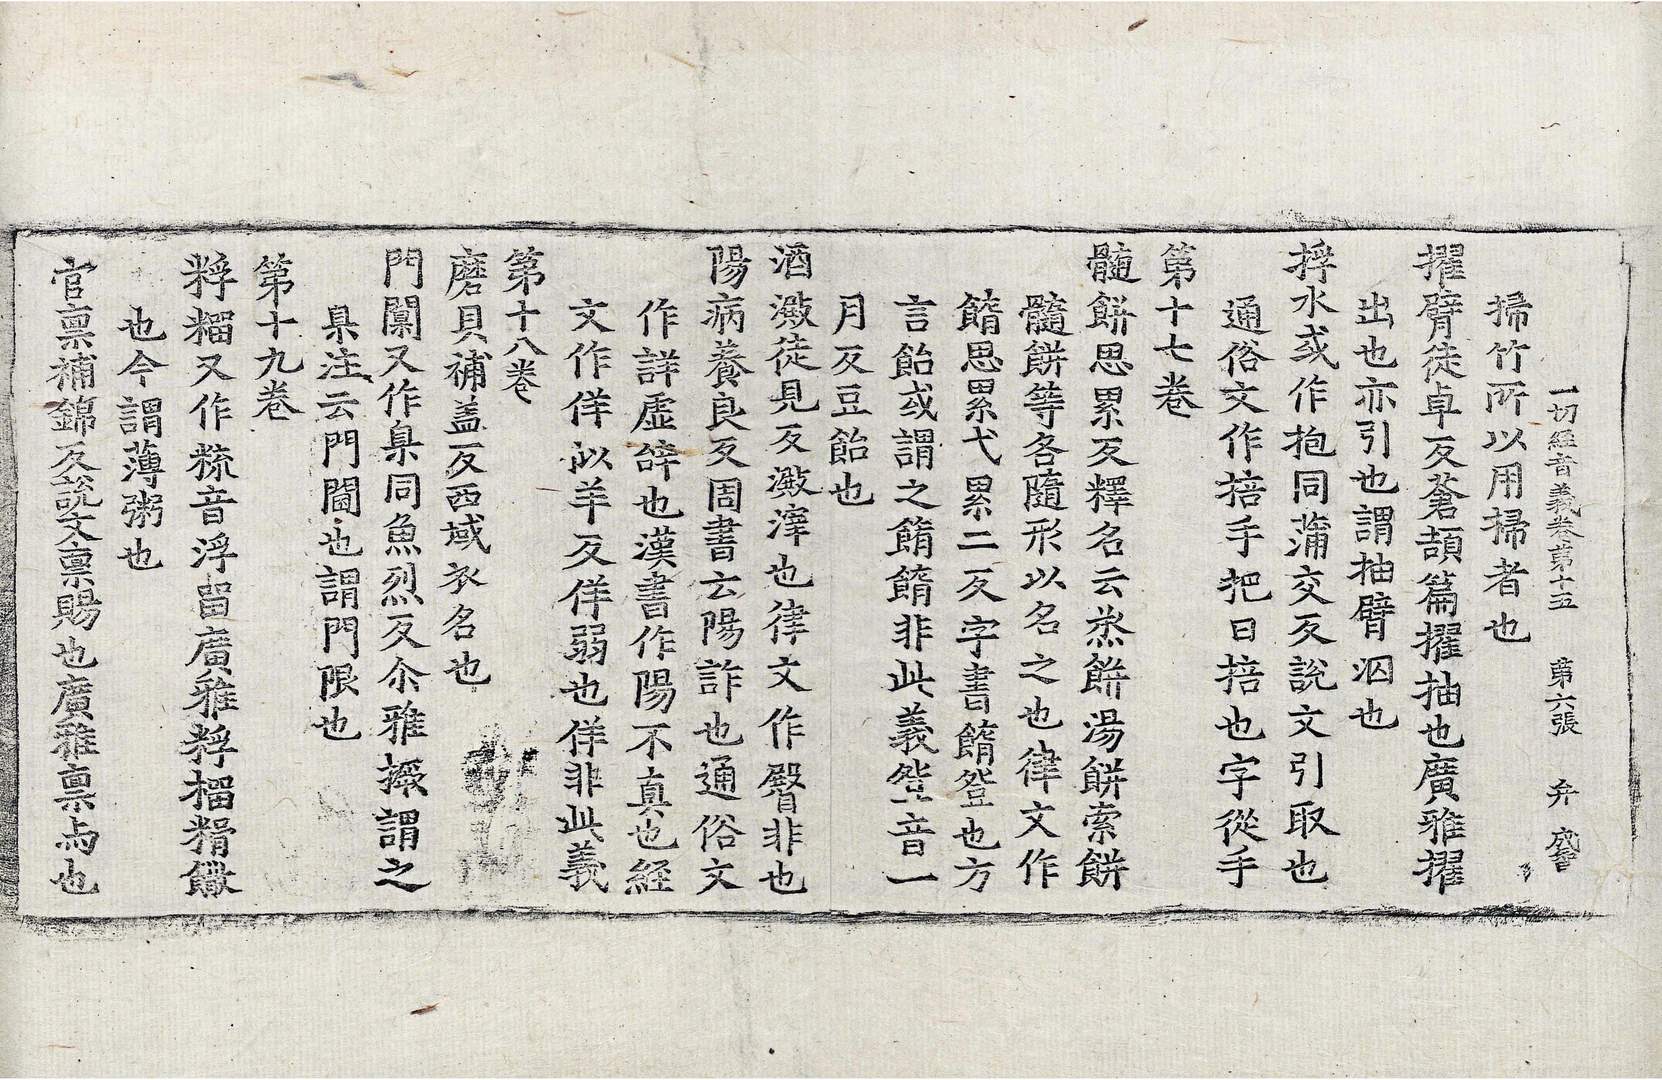 一切經音義卷第十五 第六張 弁
掃竹所以用掃者也
擢臂徒卓反蒼頡篇擢抽也廣雅擢
出也亦引也謂抽臂㓜也
捊水或作抱同蒲交反說文引取也
通俗文作掊手把曰掊也字從手
第十七卷
髓餅思累反釋名云蒸餅湯餅索餅
髓餅等各隨形以名之也律文作
䭉思累弋累二反字書䭉䬦也方
言飴或謂之䭉䭉非此義䬦音一
月反豆飴也
酒澱徒見反澱滓也律文作臋非也
陽病養良反周書云陽詐也通俗文
作詳虛辝也漢書作陽不真也經
文作佯似羊反佯弱也佯非此義
第十八卷
磨貝補盖反西域衣名也
門闑又作臬同魚烈反尒雅橛謂之
臬注云門閫也謂門限也
第十九卷
粰䊩又作䊧音浮留廣雅粰䊩糈饊
也今謂薄粥也
官稟補錦反說文稟賜也廣雅稟与也